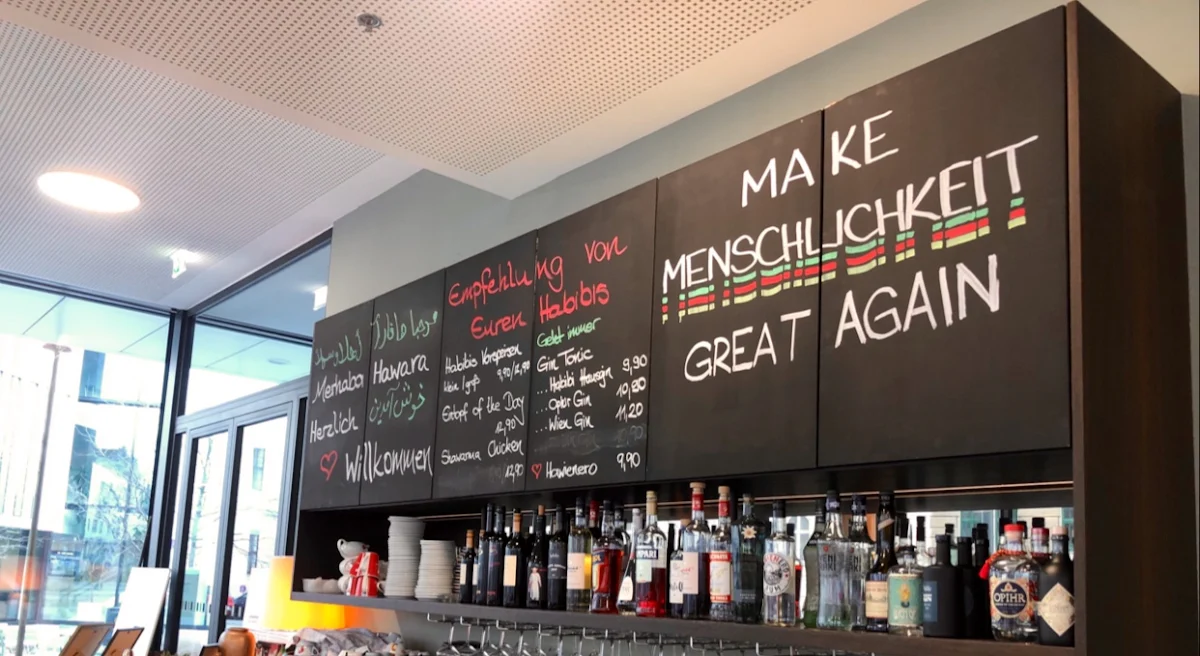 أهلا وسهلا
Merhaba
Herzlich
مرحبا
Hawara
خوش آمدین
Willkommen
Empfehlung von
Euren Habibis
Habibis Vorspeisen
klein/groß 9,90/12,90
Eintopf of the Day
12,90
Shawarma Chicken
12,90
Geht immer
Gin Tonic
...Habibi Hausgin 9,90
...Opihr Gin 10,80
...Wien Gin 11,20
Hawienero 9,90
MAKE
MENSCHLICHKEIT
GREAT AGAIN
OPIHR